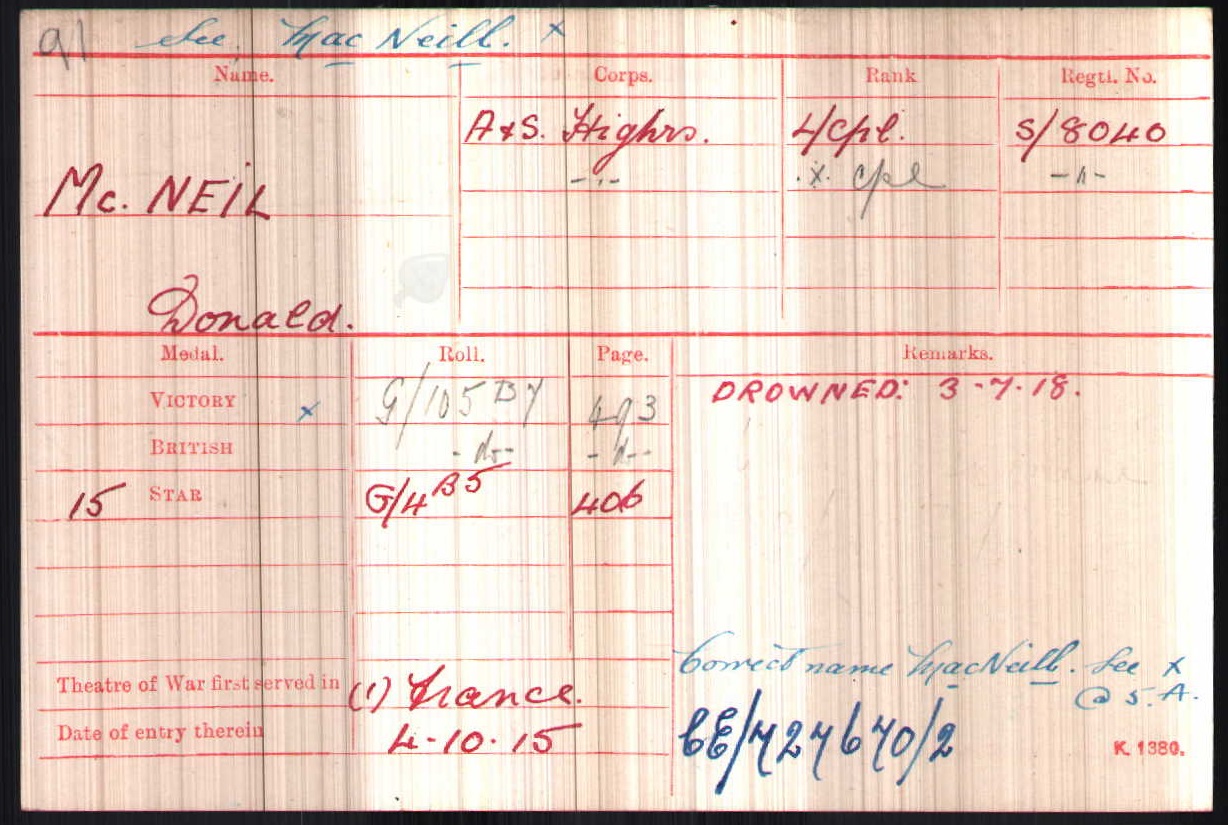 91 See. MacNeill. x
Name. Corps. Rank Regtl. No.
A & S. Highrs. L/Cpl. S/8040
-"- x. cpl -"-
Mc. NEIL
Donald.
Medal. Roll. Page. Remarks.
VICTORY x G/105 B7 493 DROWNED: 3-7-18.
BRITISH -do- -do-
15 STAR G/4 B5 406
Correct name MacNeill. See x
@ 5. A.
Theatre of War first served in (1) France.
Date of entry therein 4-10-15 CE/727670/2 K. 1380.